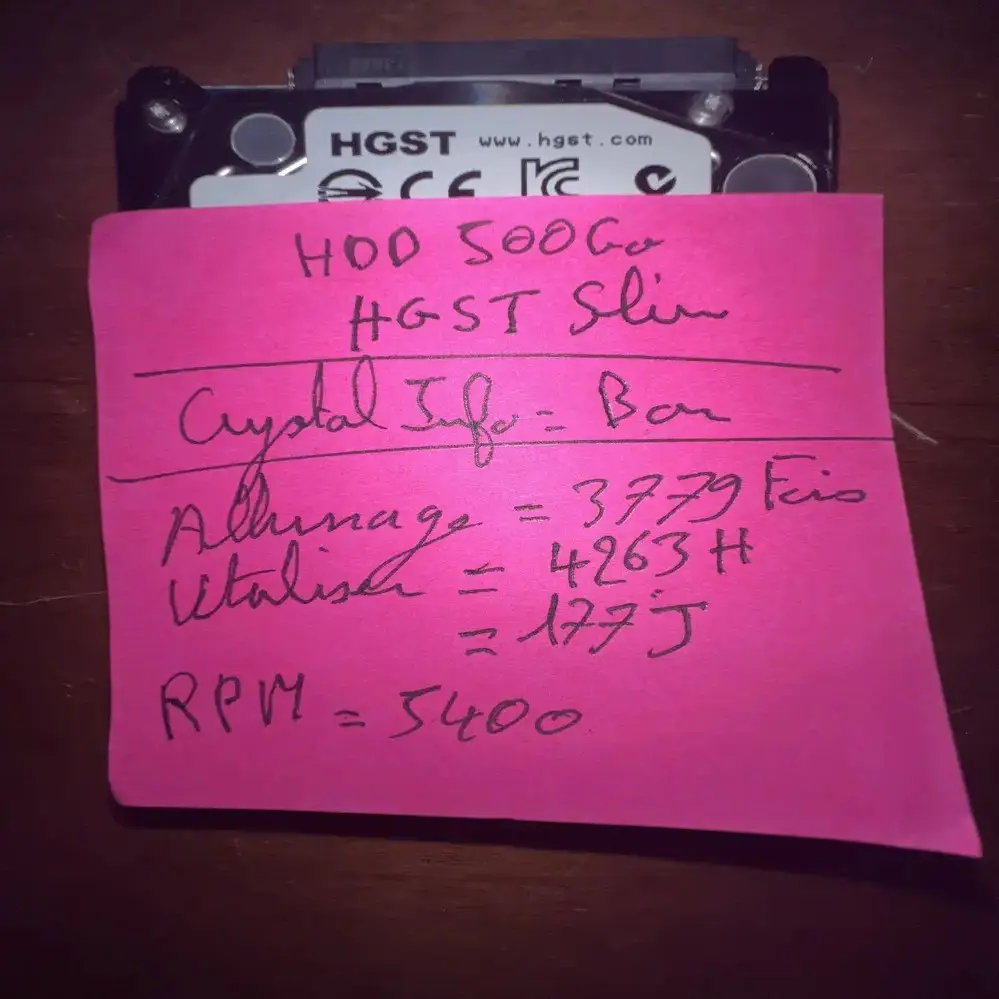 HGST www.hgst.com
CE
HDD 500Go
HGST Slim
Crystal Info = Bon
Allumage = 3779 Fois
Utaliser = 4263 H
= 177 J
RPM = 5400